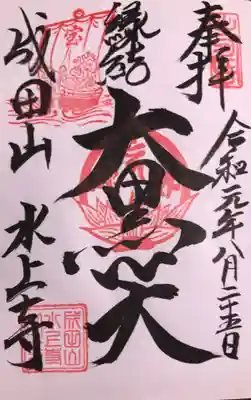 奉拝
令和元年八月二十五日
縁結
大黒天
成田山 水上寺
宝
成田山
水上寺